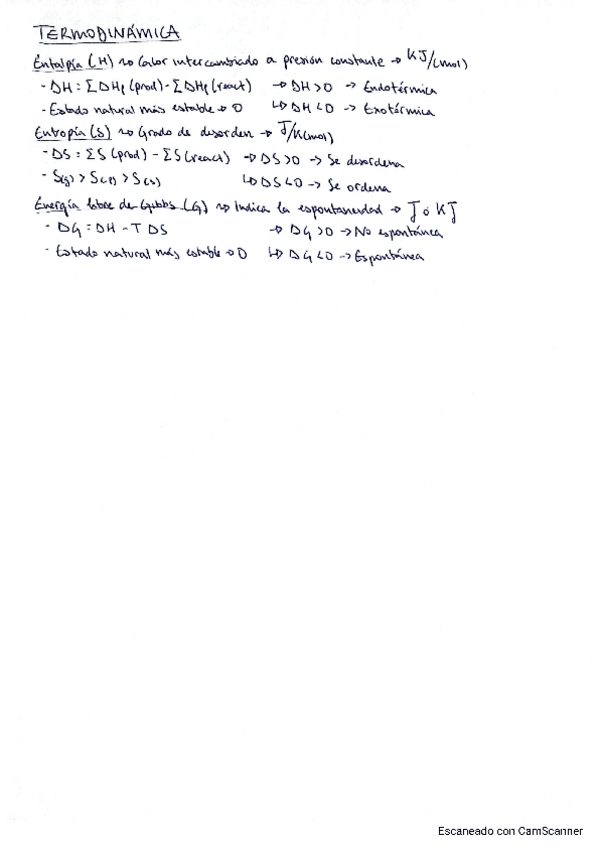 TERMODINÁMICA
Entalpía (H) → Calor intercambiado a presión constante → KJ/(mol)
- ΔH = ΣΔHf (prod) - ΣΔHf (react) → ΔH > 0 → Endotérmica
- Estado natural más estable → 0 ↳ ΔH < 0 → Exotérmica
Entropía (S) → Grado de desorden → J/K(mol)
- ΔS = ΣS (prod) - ΣS (react) → ΔS > 0 → Se desordena
- S(g) > S(l) > S(s) ↳ ΔS < 0 → Se ordena
Energía libre de Gibbs (G) → Indica la espontaneidad → J ó KJ
- ΔG = ΔH - T ΔS → ΔG > 0 → No espontánea
- Estado natural más estable → 0 ↳ ΔG < 0 → Espontánea
Escaneado con CamScanner